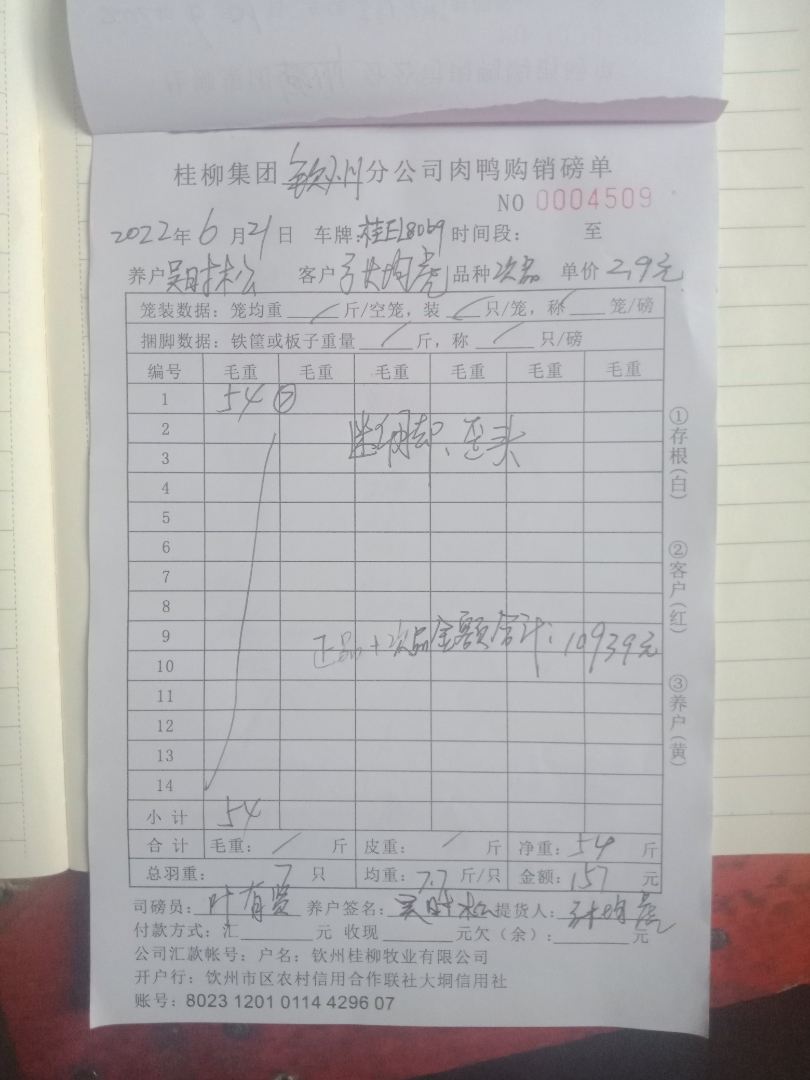 桂柳集团 钦州 分公司肉鸭购销磅单
NO 0004509
2022年 6 月 21 日 车牌: 桂EL8069 时间段: 至
养户 吴时松 客户 张均亮 品种 次品 单价 2.9元
笼装数据: 笼均重 / 斤/空笼, 装 / 只/笼, 称 / 笼/磅
捆脚数据: 铁筐或板子重量 / 斤, 称 / 只/磅
编号 毛重 毛重 毛重 毛重 毛重 毛重
1 54 ⑦
2 歪头
3
4
5
6
7
8
9 正品+次品金额合计: 10939元
10
11
12
13
14
小计 54
合计 毛重: / 斤 皮重: / 斤 净重: 54 斤
总羽重: 7 只 均重: 7.7 斤/只 金额: 157 元
司磅员: 叶有贤 养户签名: 吴时松 提货人: 张均亮
付款方式: 汇 元 收现 元欠(余): 元
公司汇款帐号: 户名: 钦州桂柳牧业有限公司
开户行: 钦州市区农村信用合作联社大垌信用社
账号: 8023 1201 0114 4296 07
①存根(白)
②客户(红)
③养户(黄)